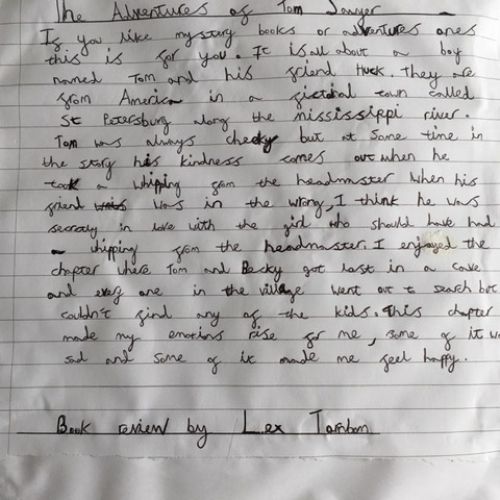 The Adventures of Tom Sawyer
If you like mystory books or adventures ones
this is for you. It is all about a boy
named Tom and his friend Huck. They are
from America in a fictoral town called
St Petersburg along the mississippi river.
Tom was always cheeky but at same time in
the story his kindness comes out when he
took a whipping from the headmaster when his
friend was in the wrong, I think he was
secretly in love with the girl who should have had
a whipping from the headmaster. I enjoyed the
chapter where Tom and Becky got lost in a cave
and every one in the village went out to search but
couldn't find any of the kids. this chapter
made my emotions rise for me, some of it w
sad and some of it made me feel happy.
Book review by Lex